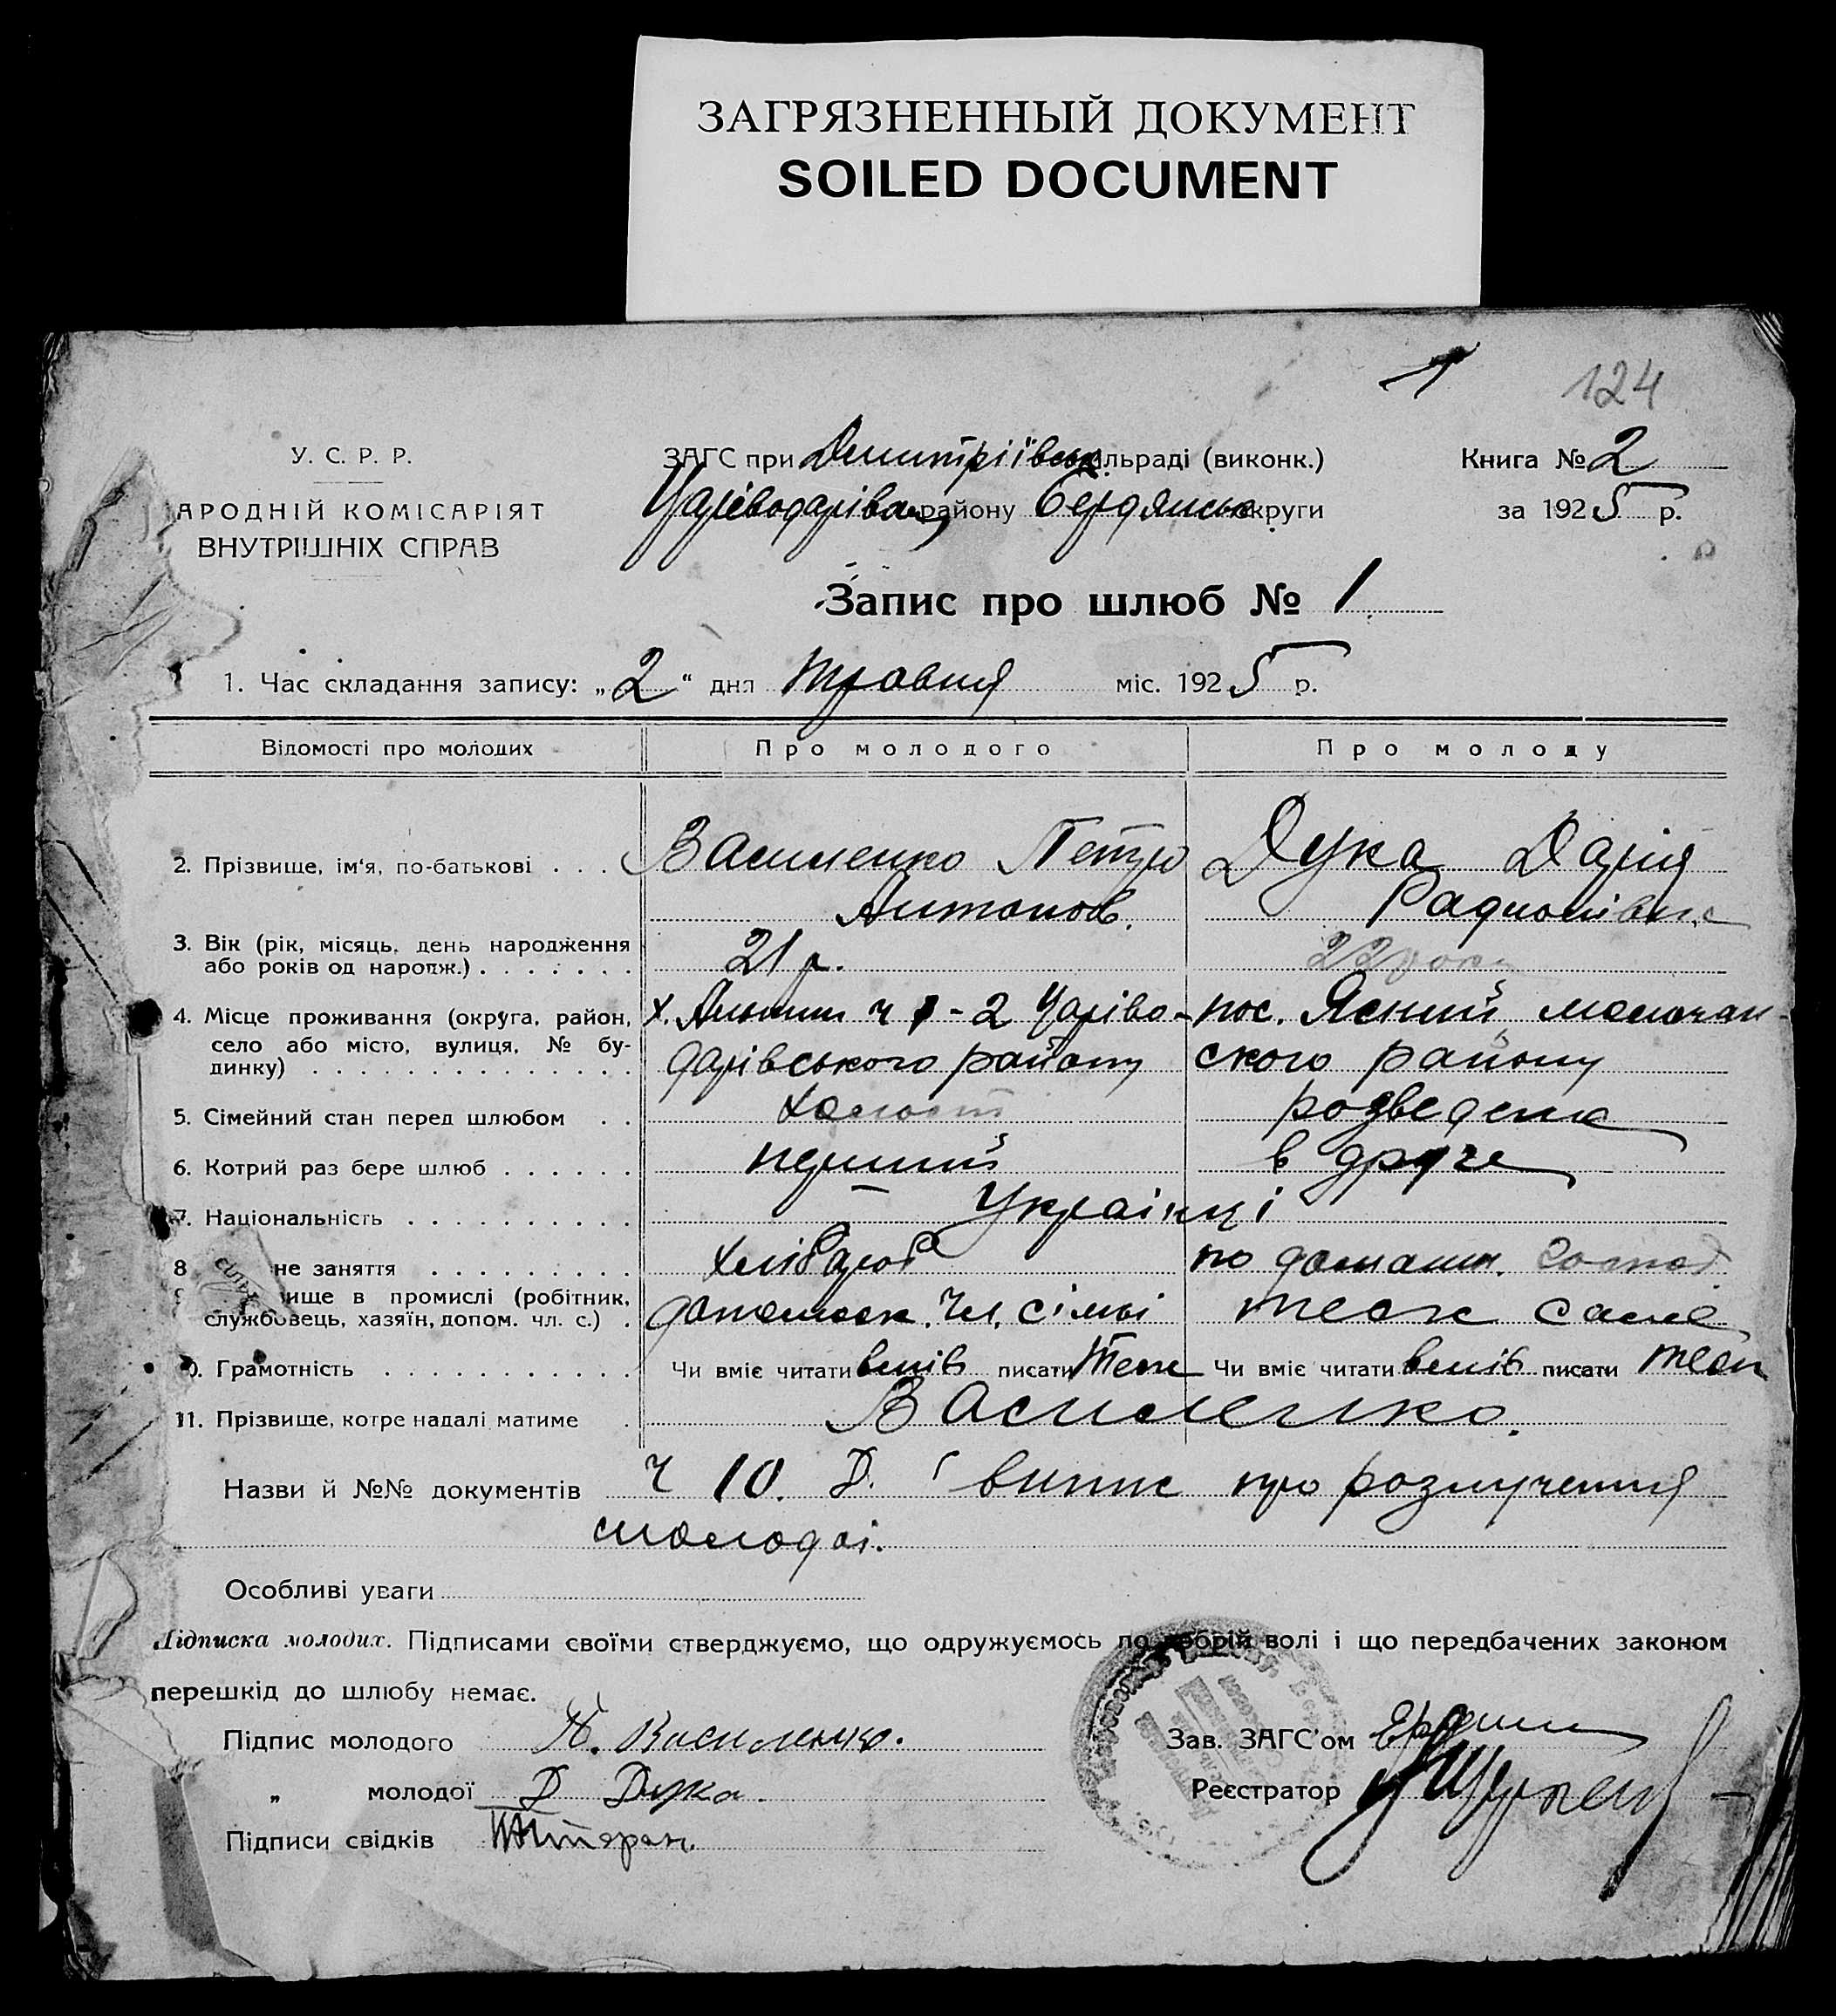 ЗАГРЯЗНЕННЫЙ ДОКУМЕНТ
SOILED DOCUMENT
124
У. С. Р. Р.
АРОДНІЙ КОМІСАРІЯТ
ВНУТРІШНІХ СПРАВ
ЗАГС при Дмитріївськ. ільраді (виконк.)
району Бердянськ. округи
Книга № 2
за 1925 р.
Запис про шлюб № 1
1. Час складання запису: „2“ дня травня міс. 1925 р.
Відомості про молодих Про молодого Про молоду
2. Прізвище, ім‘я, по-батькові . . . Василенко Петро Дука Дарія
Антонов. Радионівна
3. Вік (рік, місяць, день народження
або років од народж.) . . . . . . . 21 р. 22 роки
4. Місце проживання (округа, район, х. ч - 2 Царіво- пос. Ясний, молочан-
село або місто, вулиця, № бу-
динку) . . . . . . . . . . . . . . дарівського району ского району
5. Сімейний стан перед шлюбом . . холост розведена
6. Котрий раз бере шлюб . . . . . . перший в друге
7. Національність . . . . . . . . . . Українці
8 не заняття . . . . . . . . . хлібороб по домашн. господ.
ище в промислі (робітник,
службовець, хазяїн, допом. чл. с.) . допомож. чл. сімьі теж саме
0. Грамотність . . . . . . . . . . . Чи вміє читати вміє писати теж Чи вміє читати вміє писати теж
11. Прізвище, котре надалі матиме . Василенко.
Назви й №№ документів ч 10. Д. випис про розлучення
молодої.
Особливі уваги
Підписка молодих. Підписами своїми стверджуємо, що одружуємось по добрій волі і що передбачених законом
перешкід до шлюбу немає.
Підпис молодого П. Василенко.
„ молодої Д Дука.
Підписи свідків
Зав. ЗАГС‘ом
Реєстратор